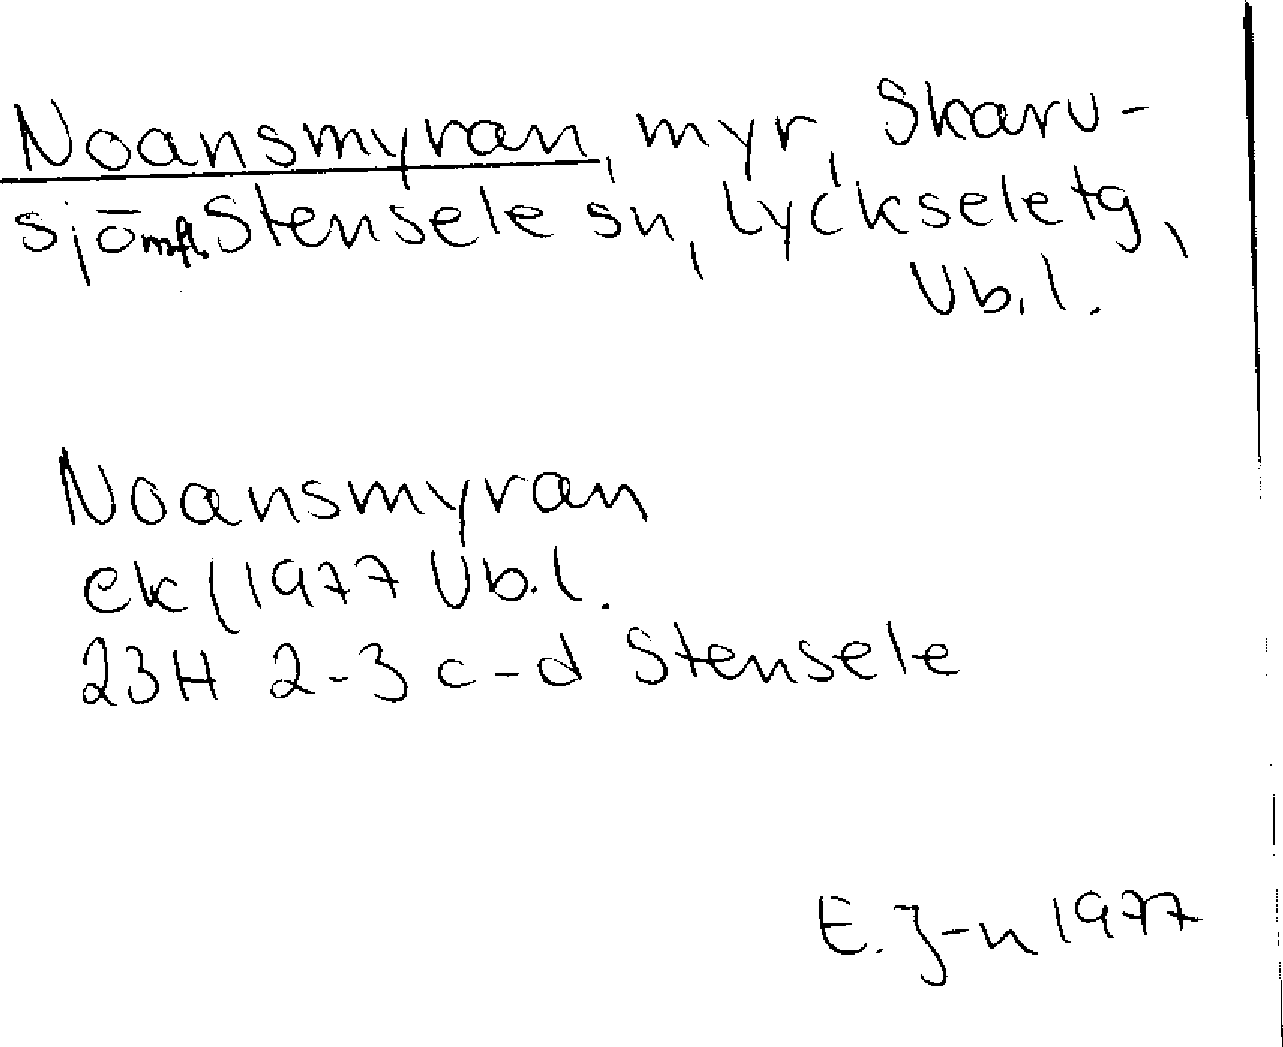 Noansmyran, myr, Skarv-
sjö mfl. Stensele sn, Lycksele tg,
Vb. l.
Noansmyran
ek (1977 Vb. l.
23H 2-3 c-d Stensele
E. J-n 1977